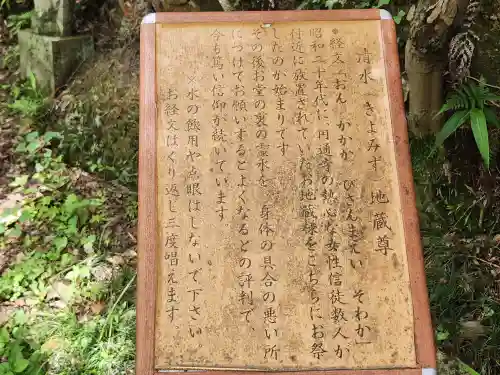 清水 きよみず 地蔵尊
•経文「おん かかか びさんまえい そわか」
昭和二十年代に、円通寺の熱心な女性信徒数人が
付近に放置されていたお地蔵様をこちらにお祭
したのが始まりです。
その後お堂の裏の霊水を、身体の具合の悪い所
につけてお願いするとよくなるとの評判で、
今も篤い信仰が続いています。
※水の飲用や点眼はしないで下さい。
お経文はくり返し三度唱えます